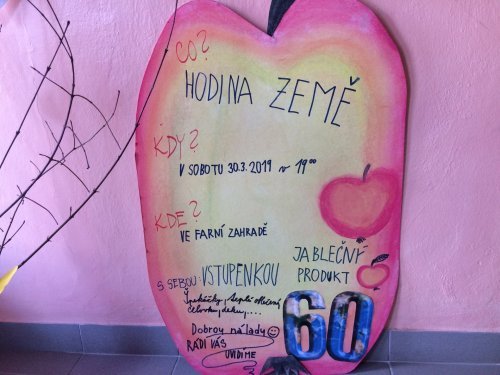 CO?
HODINA ZEMĚ
KDY?
V SOBOTU 30.3.2019 v 19⁰⁰
KDE?
VE FARNÍ ZAHRADĚ
S SEBOU: VSTUPENKOU
JABLEČNÝ
PRODUKT
Špekáčky, teplé oblečení
čelovku, deku,....
Dobrou náladu ☺
RÁDI VÁS
UVIDÍME
60